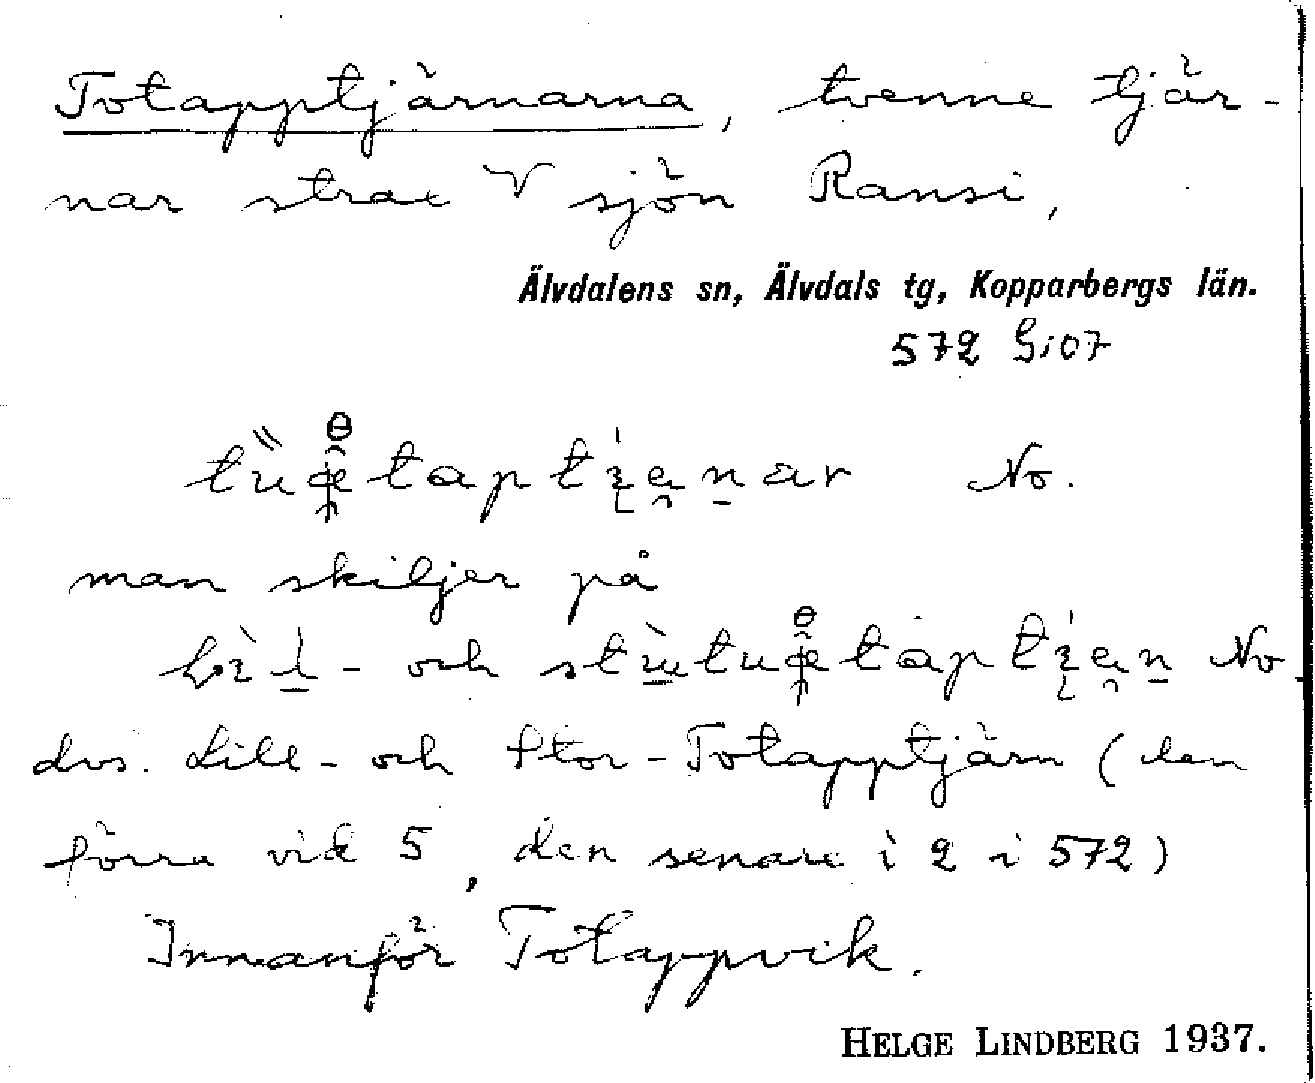 Totapptjärnarna, tvenne tjär-
nar strax V sjön Ransi,
Älvdalens sn, Älvdals tg, Kopparbergs län.
572 Gi07
No.
man skiljer på
och No
dvs. Lill- och Stor-Totapptjärn (den
förra vid 5, den senare i 2 i 572)
Innanför Totappvik.
HELGE LINDBERG 1937.